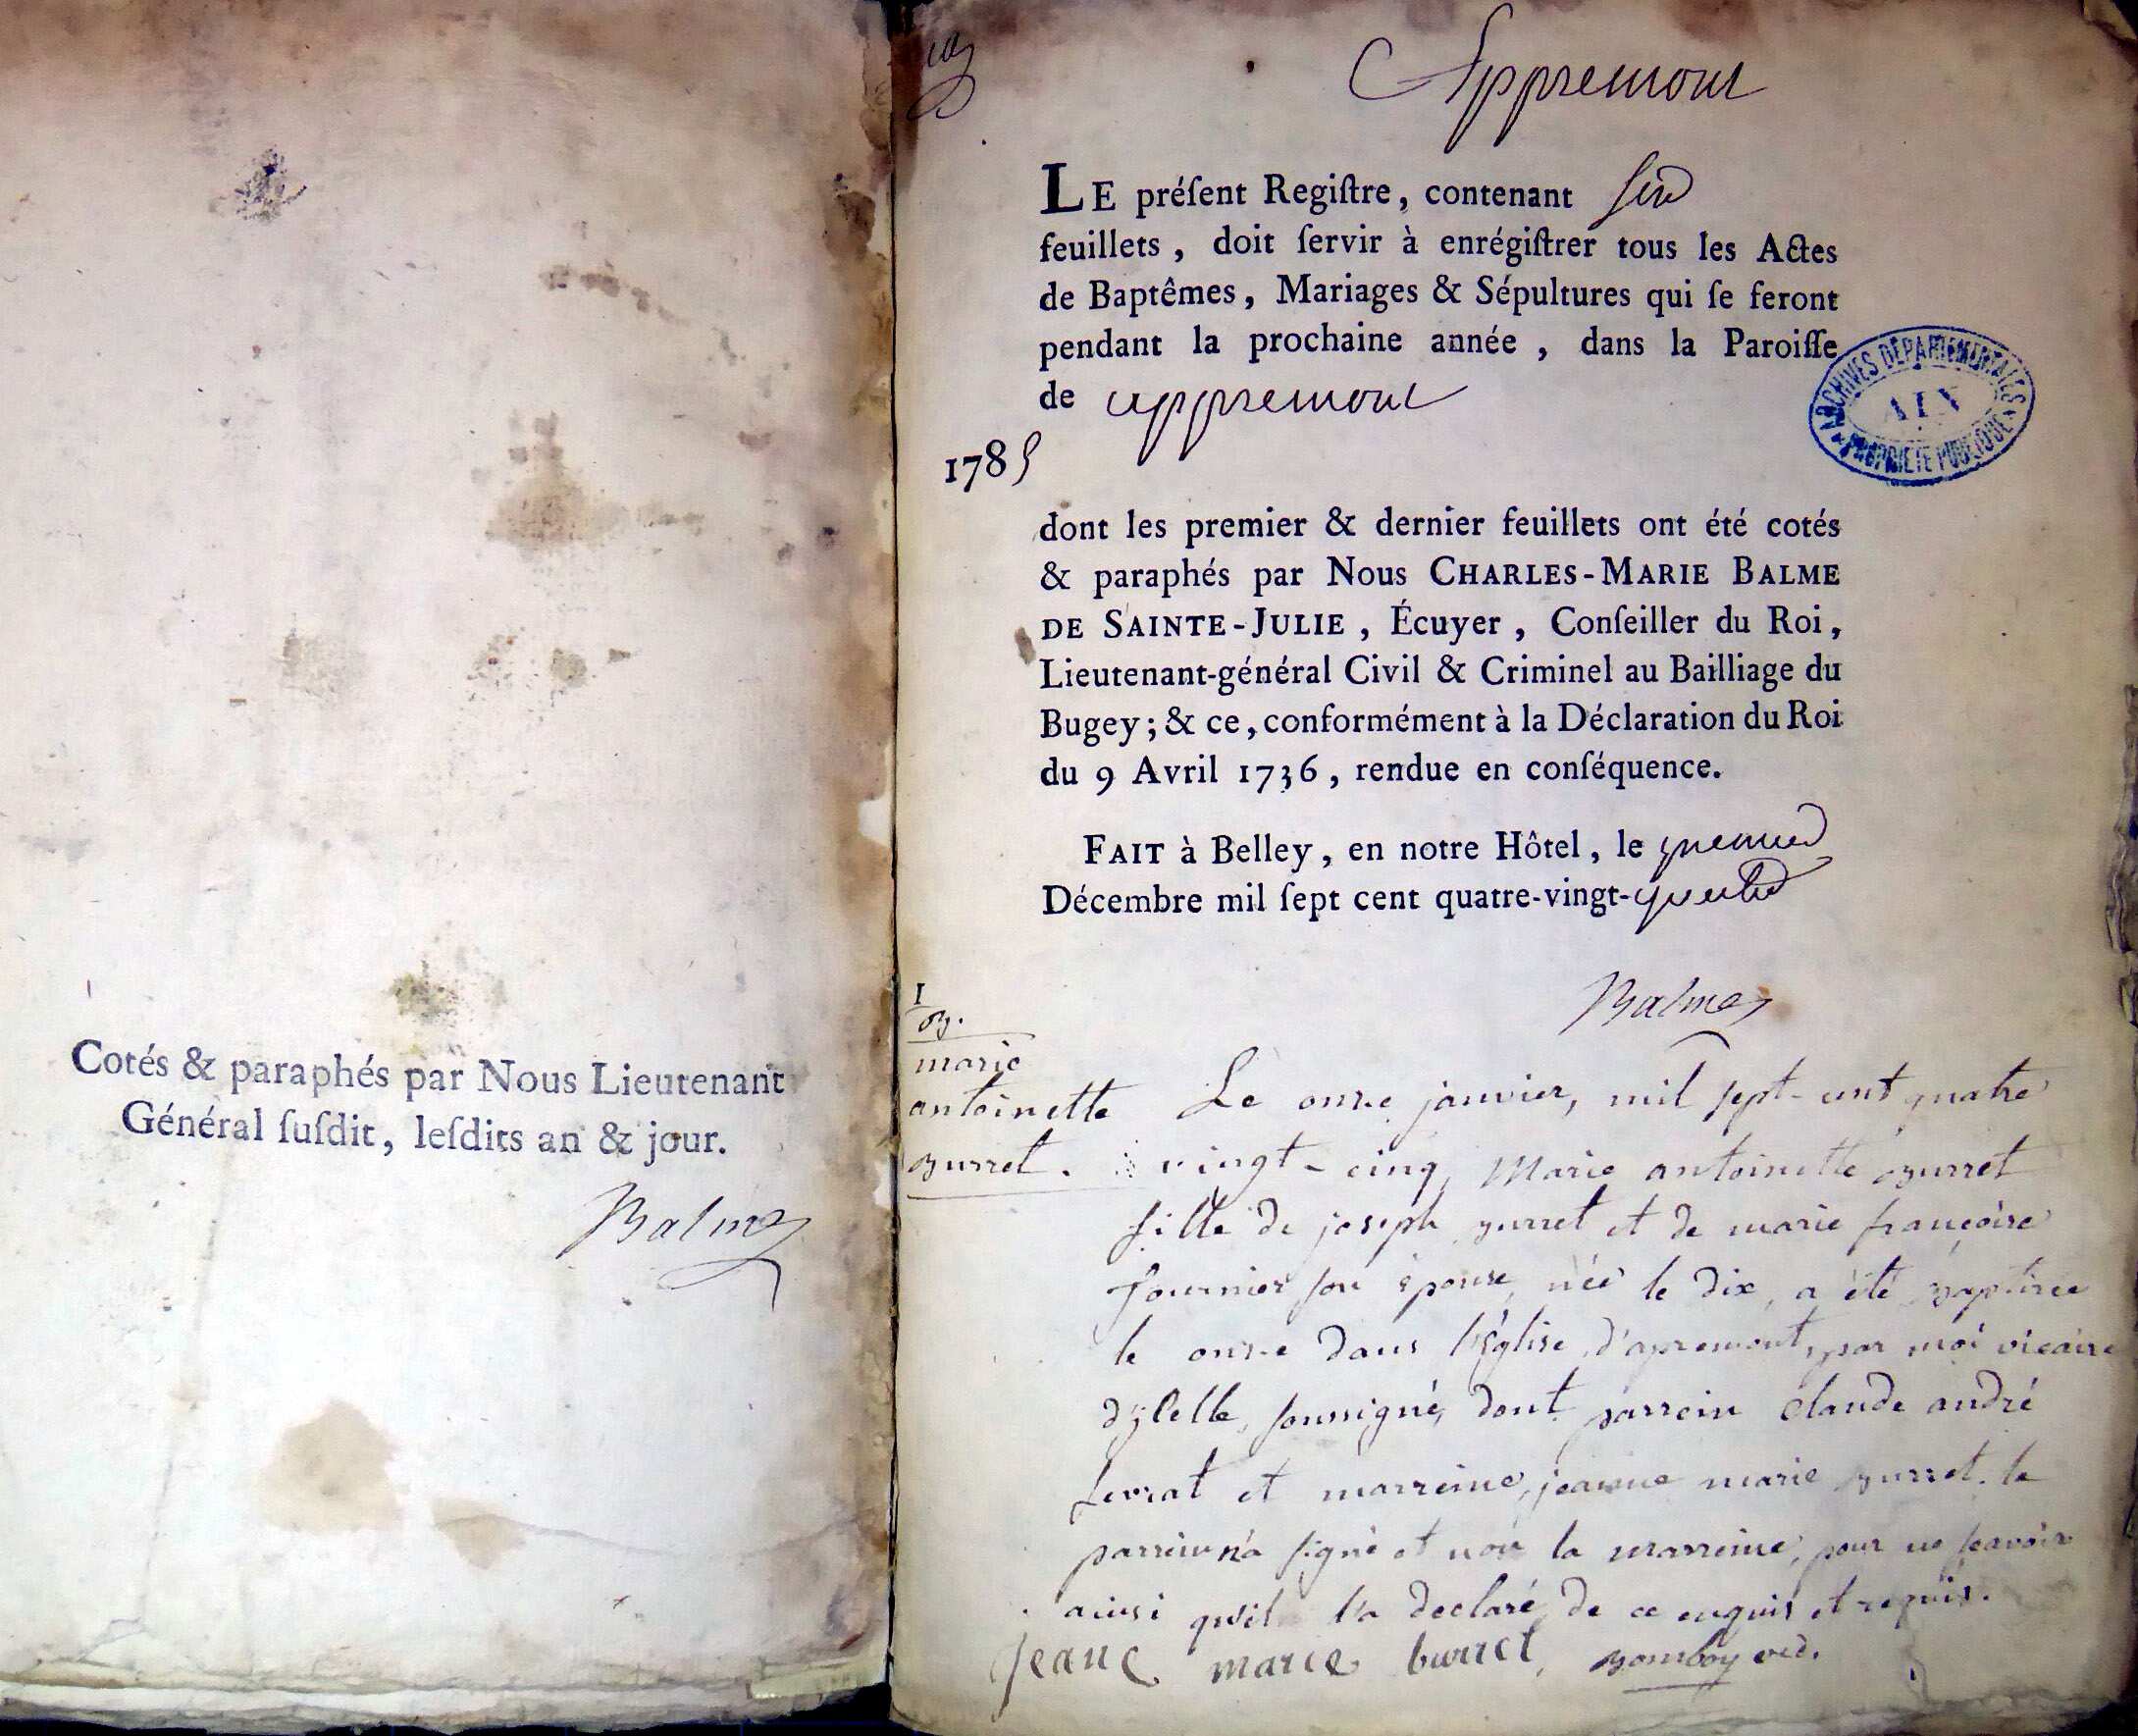 Cotés & paraphés par Nous Lieutenant
Général ſuſdit, leſdits an & jour.
Balme
Appremont
LE préſent Regiſtre, contenant six
feuillets, doit ſervir à enrégiſtrer tous les Actes
de Baptêmes, Mariages & Sépultures qui ſe feront
pendant la prochaine année, dans la Paroiſſe
de appremont
ARCHIVES DEPARTEMENTALES
AIN
PROPRIETE PUBLIQUE
1785
dont les premier & dernier feuillets ont été cotés
& paraphés par Nous CHARLES-MARIE BALME
DE SAINTE-JULIE, Écuyer, Conſeiller du Roi,
Lieutenant-général Civil & Criminel au Bailliage du
Bugey; & ce, conformément à la Déclaration du Roi
du 9 Avril 1736, rendue en conſéquence.
FAIT à Belley, en notre Hôtel, le premier
Décembre mil ſept cent quatre-vingt-quatre
Balme
1
B.
marie
antoinette
Burret.
Le onze janvier, mil sept-cent quatre
vingt-cinq, Marie antoinette Burret
fille de joseph Burret et de marie françoise
fournier son épouse, née le dix, a été Baptisée
le onze dans l'Église d'apremont, par moi vicaire
soussigné, dont parrein Claude andré
Levrat et marreine, jeanne marie Burret. le
parrein n'a signé et non la marreine, pour ne sçavoir
ainsi qu'il l'a declaré de ce enquis et requis.
jeane marie burret, vic.